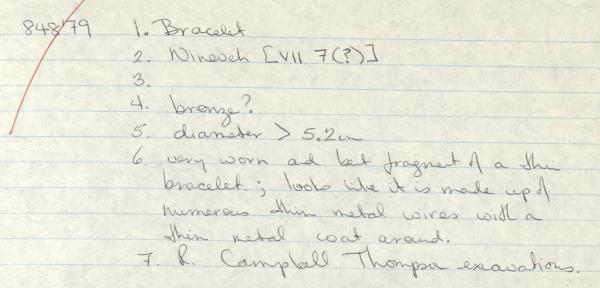 848'79 1. Bracelet
2. Nineveh [VII 7(?)]
3.
4. bronze?
5. diameter > 5.2cm
6. very worn and bent fragment of a thin
bracelet.; looks like it is made up of
numerous thin metal wires with a
thin metal coat around.
7. R. Campbell Thompson excavations.